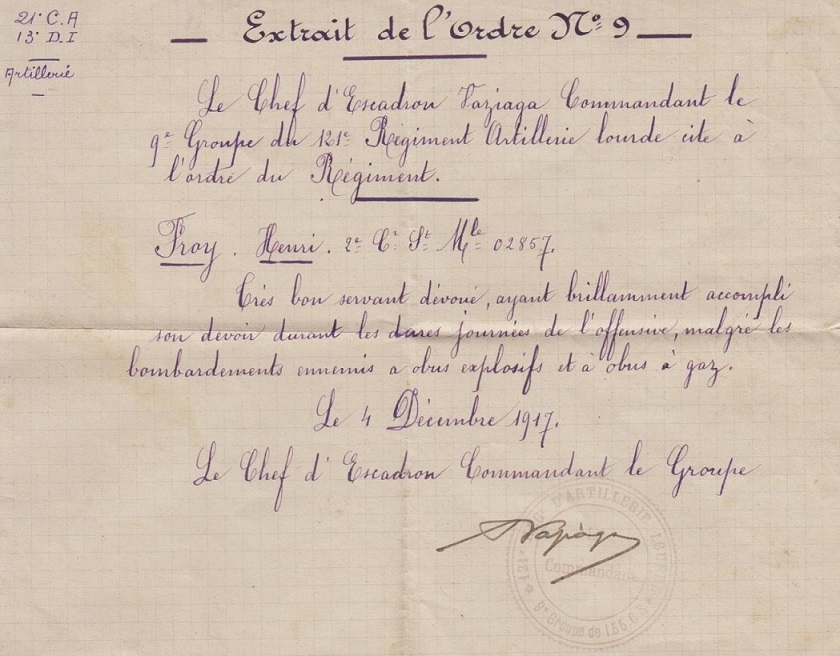 21e C.A
13e D.I
Artillerie
Extrait de l'Ordre No 9
Le Chef d'Escadron Vaziaga Commandant le
9e Groupe du 121e Régiment Artillerie lourde cite à
l'ordre du Régiment.
Froy. Henri. 2e Cr St Mle 02857.
Trés bon servant dévoué, ayant brillamment accompli
son devoir durant les dures journées de l'offensive, malgré les
bombardements ennemis a obus explosifs et à obus à gaz.
Le 4 Décembre 1917.
Le Chef d'Escadron Commandant le Groupe
121e D'ARTILLERIE LOURDE
Commandant
9e Groupe de 155.C.S